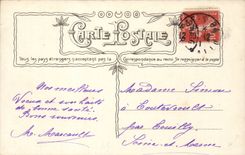 CARTE POSTALE
Tous les pays étrangers n'acceptent pas la
correspondance au recto. Se renseigner à la poste
Nos meilleurs
Vœux et souhaits
de bonne santé.
Bons souvenirs
Madame Simon
à
par Couilly
Seine et Marne